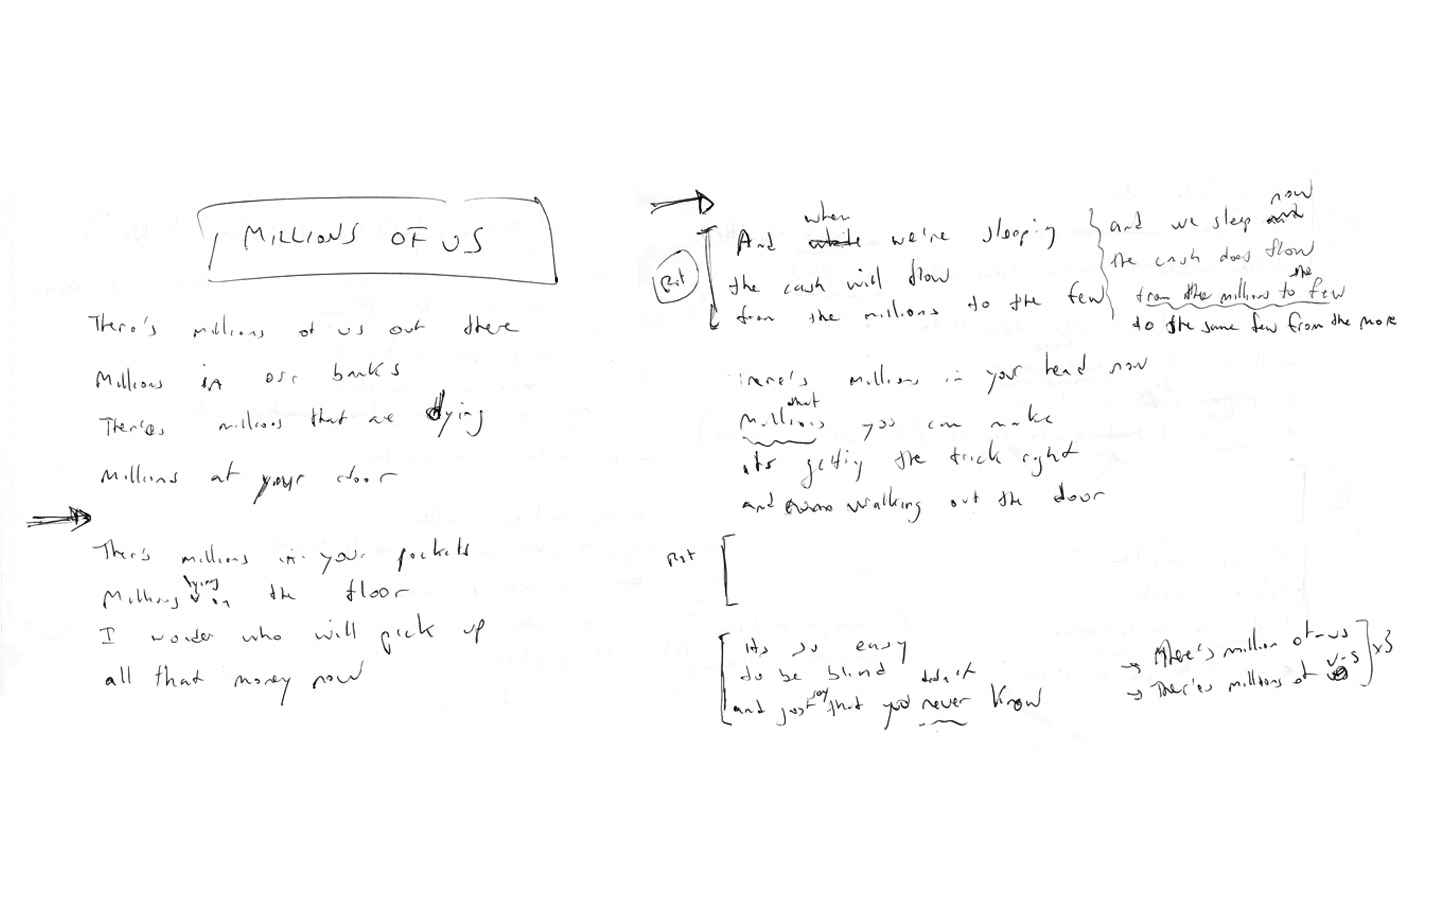 MILLIONS OF US
There's millions of us out there
Millions in our banks
There's millions that are dying
Millions at your door
Ther's millions in your pockets
Millions lying in the floor
I wonder who will pick up
all that money now
And when we're sleeping
the cash will flow
from the millions to the few
and we sleep now
the cash does flow
from the millions to the few
to the same few from the more
There's millions in your head now
Millions that you can make
its getting the trick right
and walking out the door
its so easy
to be blind
and just say that you never didn't know
→ There's million of us
→ There's millions of us
x3